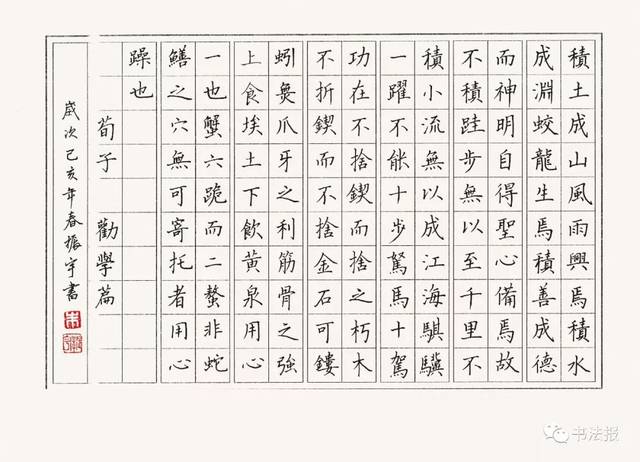 積土成山風雨興焉積水
成淵蛟龍生焉積善成德
而神明自得聖心備焉故
不積跬步無以至千里不
積小流無以成江海騏驥
一躍不能十步駑馬十駕
功在不捨鍥而捨之朽木
不折鍥而不捨金石可鏤
蚓無爪牙之利筋骨之強
上食埃土下飲黃泉用心
一也蟹六跪而二螯非蛇
鱔之穴無可寄托者用心
躁也
荀子 勸學篇
歲次己亥年春振宇書
书法报